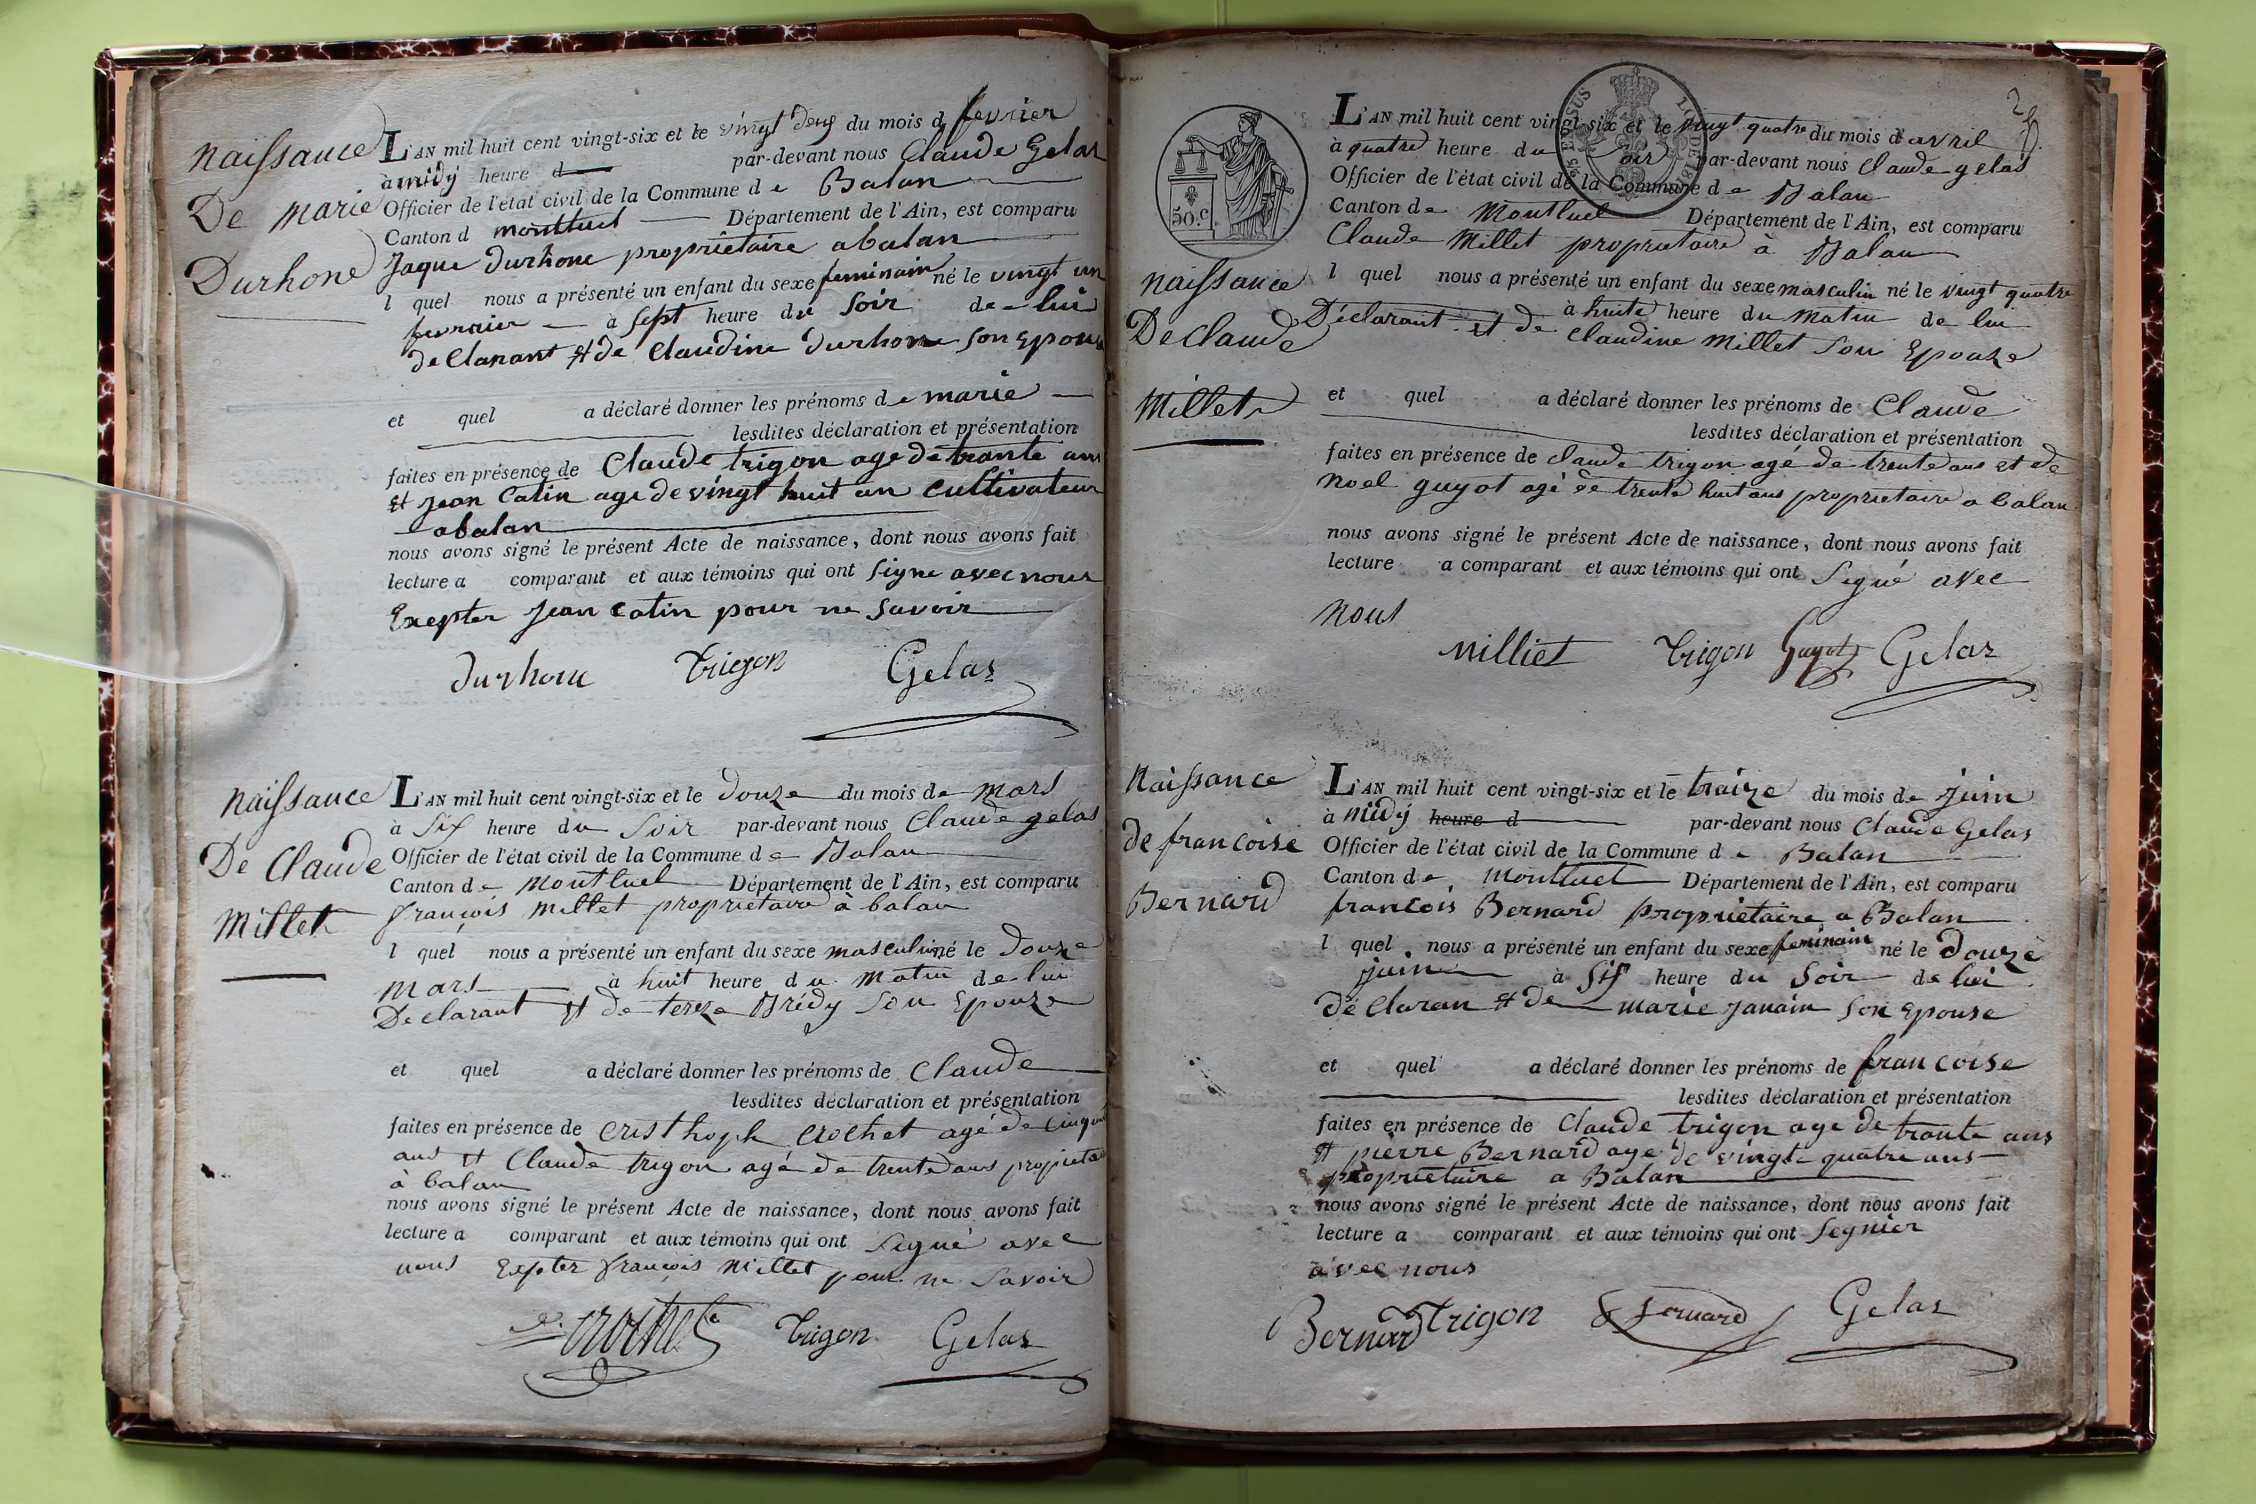 Naissance
De marie
Durhone
L'AN mil huit cent vingt-six et le vingt deux du mois d fevrier
à midy heure d par-devant nous Claude Gelas
Officier de l'état civil de la Commune de Balan
Canton d montluel Département de l'Ain, est comparu
Jaque Durhone propriètaire abalan
l quel nous a présenté un enfant du sexe feminain né le vingt un
fevraier à sept heure du soir de lui
declarant et de Claudine durhone son epouse
et quel a déclaré donner les prénoms de marie
lesdites déclaration et présentation
faites en présence de Claude trigon age de trante ans
et jean Catin age de vingt huit an cultivateur
abalan
nous avons signé le présent Acte de naissance, dont nous avons fait
lecture a comparant et aux témoins qui ont signe avec nous
Exepter jean catin pour ne savoir
durhone Trigon Gelas
Naissance
De Claude
Millet
L'AN mil huit cent vingt-six et le douze du mois de mars
à six heure du soir par-devant nous Claude gelas
Officier de l'état civil de la Commune de Balan
Canton de Montluel Département de l'Ain, est comparu
françois millet proprietaire a balan
l quel nous a présenté un enfant du sexe masculin né le douze
mars à huit heure du matin de lui
Declarant et de tereze Brédy son Epouze
et quel a déclaré donner les prénoms de Claude
lesdites déclaration et présentation
faites en présence de Cristhoph Crochet agé de cinquante
ans et Claude trigon agé de trente ans proprietaire
à balan
nous avons signé le présent Acte de naissance, dont nous avons fait
lecture a comparant et aux témoins qui ont Segné avec
nous Expter françois Millet pour ne Savoir
Crochet Trigon Gelas
50.c
LOI DE 1816
L'AN mil huit cent vingt-six et le vingt quatre du mois d'avril
à quatre heure du soir par-devant nous Claude gelas
Officier de l'état civil de la Commune de Balan
Canton de Montluel Département de l'Ain, est comparu
Claude Millet proprietaire à Balan
Naissance
De Claude
Millet
l quel nous a présenté un enfant du sexe masculin né le vingt quatre
à huite heure du matin de lui
Déclarant et de Claudine Millet son Epouze
et quel a déclaré donner les prénoms de Claude
lesdites déclaration et présentation
faites en présence de Claude trigon agé de trente ans et de
Noel guyot agé de trente huit ans proprietaire a balan
nous avons signé le présent Acte de naissance, dont nous avons fait
lecture a comparant et aux témoins qui ont Segné avec
Nous
Milliet Trigon Guyot Gelas
Naissance
de francoise
Bernard
L'AN mil huit cent vingt-six et le traize du mois de juin
à midy heure d par-devant nous Claude Gelas
Officier de l'état civil de la Commune de Balan
Canton de montluel Département de l'Ain, est comparu
francois Bernard proprietaire a Balan
l quel nous a présenté un enfant du sexe feminain né le douze
juin à six heure du soir de lui
déclaran et de marie janain son epouse
et quel a déclaré donner les prénoms de francoise
lesdites déclaration et présentation
faites en présence de Claude trigon age de trante ans
et pierre Bernard age de vingt quatre ans
proprietaire a Balan
nous avons signé le présent Acte de naissance, dont nous avons fait
lecture a comparant et aux témoins qui ont Segnier
avec nous
Bernard Trigon Bernard Gelas